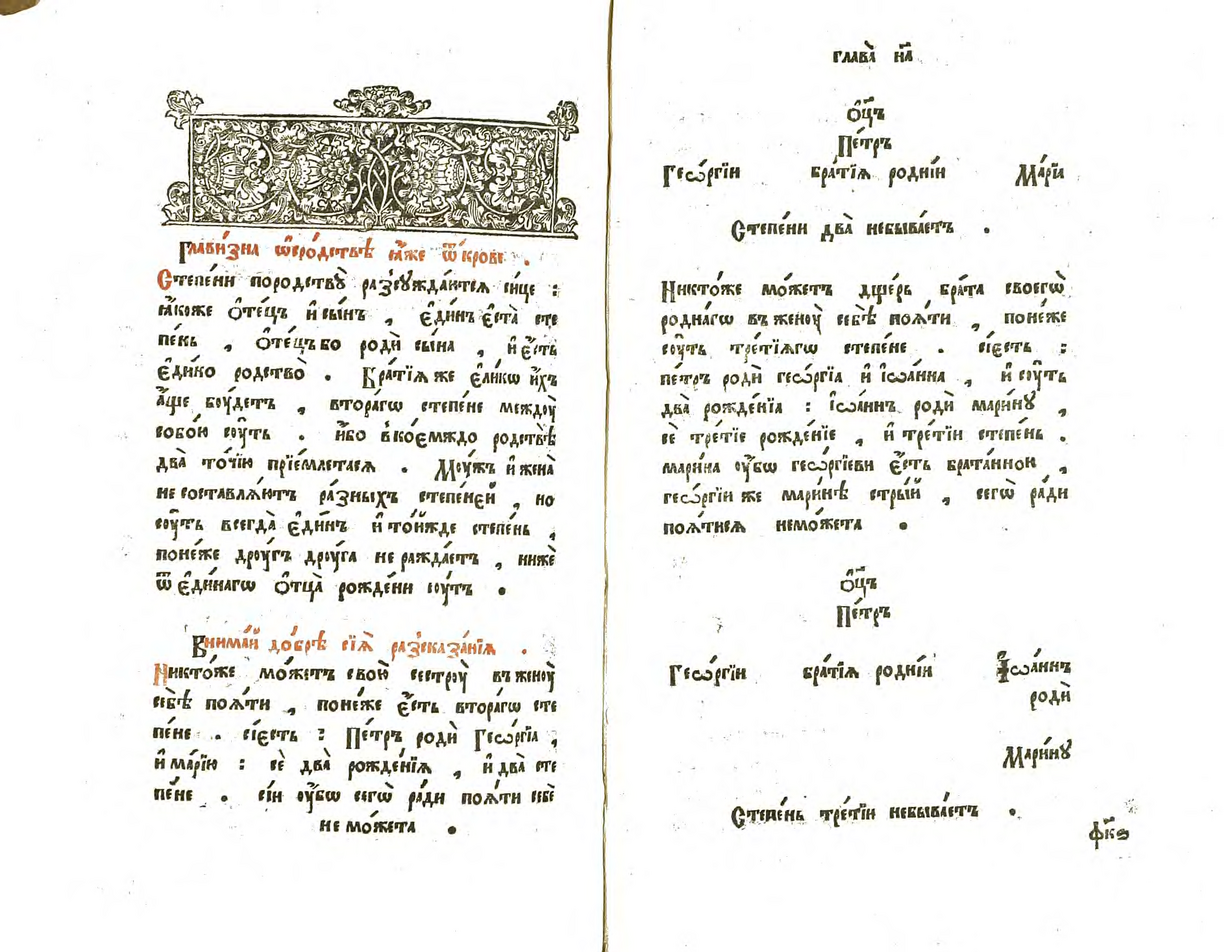 Главизна ѡ҆ сро́дствѣ ꙗ҆́же ѿ кро́ве .
Степе́ни по родствꙋ̀ разсꙋжда́ются си́це :
ꙗ҆́коже ѻ҆те́цъ и҆ сы́нъ , є҆ди́нъ є҆ста̀ сте
пе́нь , ѻ҆те́цъ бо родѝ сы́на , и҆ є҆́сть
є҆ди́но родство̀ . Бра́тїѧ же є҆ли́кѡ и҆́хъ
а҆́ще бꙋ́детъ , втора́гѡ степе́не междꙋ̀
собо́ю сꙋ́ть . и҆́бо в ко́емждо родствѣ̀
два̀ то́чїю прїе́млетася . Мꙋ́жъ и҆ жена̀
не составлѧ́ютъ ра́зныхъ степене́й , но
сꙋ́ть всегда̀ є҆ди́нъ и҆ то́йжде степе́нь ,
поне́же дрꙋ́гъ дрꙋ́га не ражда́етъ , нижѐ
ѿ є҆ди́нагѡ ѻ҆тца̀ рожде́ни сꙋ́ть .
Внима́й до́брѣ сїѧ̑ разсказа́нїѧ .
Никто́же мо́жетъ свою̀ сестрꙋ̀ въ женꙋ̀
себѣ̀ поѧ́ти , поне́же є҆́сть втора́гѡ сте
пе́не . сїе́сть : Пе́тръ родѝ Геѡ́ргїа ,
и҆ марі́ю : сѐ два̀ рожде́нїѧ , и҆ два̀ сте
пе́не . сі́и ᲂу҆́бѡ сегѡ̀ ра́ди поѧ́ти себѐ
не мо́жета .
глава̀ на҃
ѻ҆ц҃ъ
Пе́тръ
Геѡ́ргїи бра́тїѧ родні́и Марі́и
Степе́ни два̀ небыва́етъ .
Никто́же мо́жетъ дще́рь бра́та своегѡ̀
родна́гѡ въ женꙋ̀ себѣ̀ поѧ́ти , поне́же
сꙋ́ть тре́тїѧгѡ степе́не . сїе́сть :
пе́тръ родѝ геѡ́ргїа и҆ і҆ѡа́нна , и҆ сꙋ́ть
два̀ рожде́нїа : і҆ѡа́ннъ родѝ мари́нꙋ ,
сѐ тре́тїе рожде́нїе , и҆ тре́тїи степе́нь .
мари́на ᲂу҆́бѡ геѡ́ргїеви є҆́сть брата́ннои ,
геѡ́ргїи же мари́нѣ стры́й , сегѡ̀ ра́ди
поѧ́тисѧ немо́жета .
ѻ҆ц҃ъ
Пе́тръ
Геѡ́ргїи бра́тїѧ родні́и І҆ѡа́ннъ
родѝ
Мари́нꙋ
Степе́нь тре́тїи небыва́етъ .